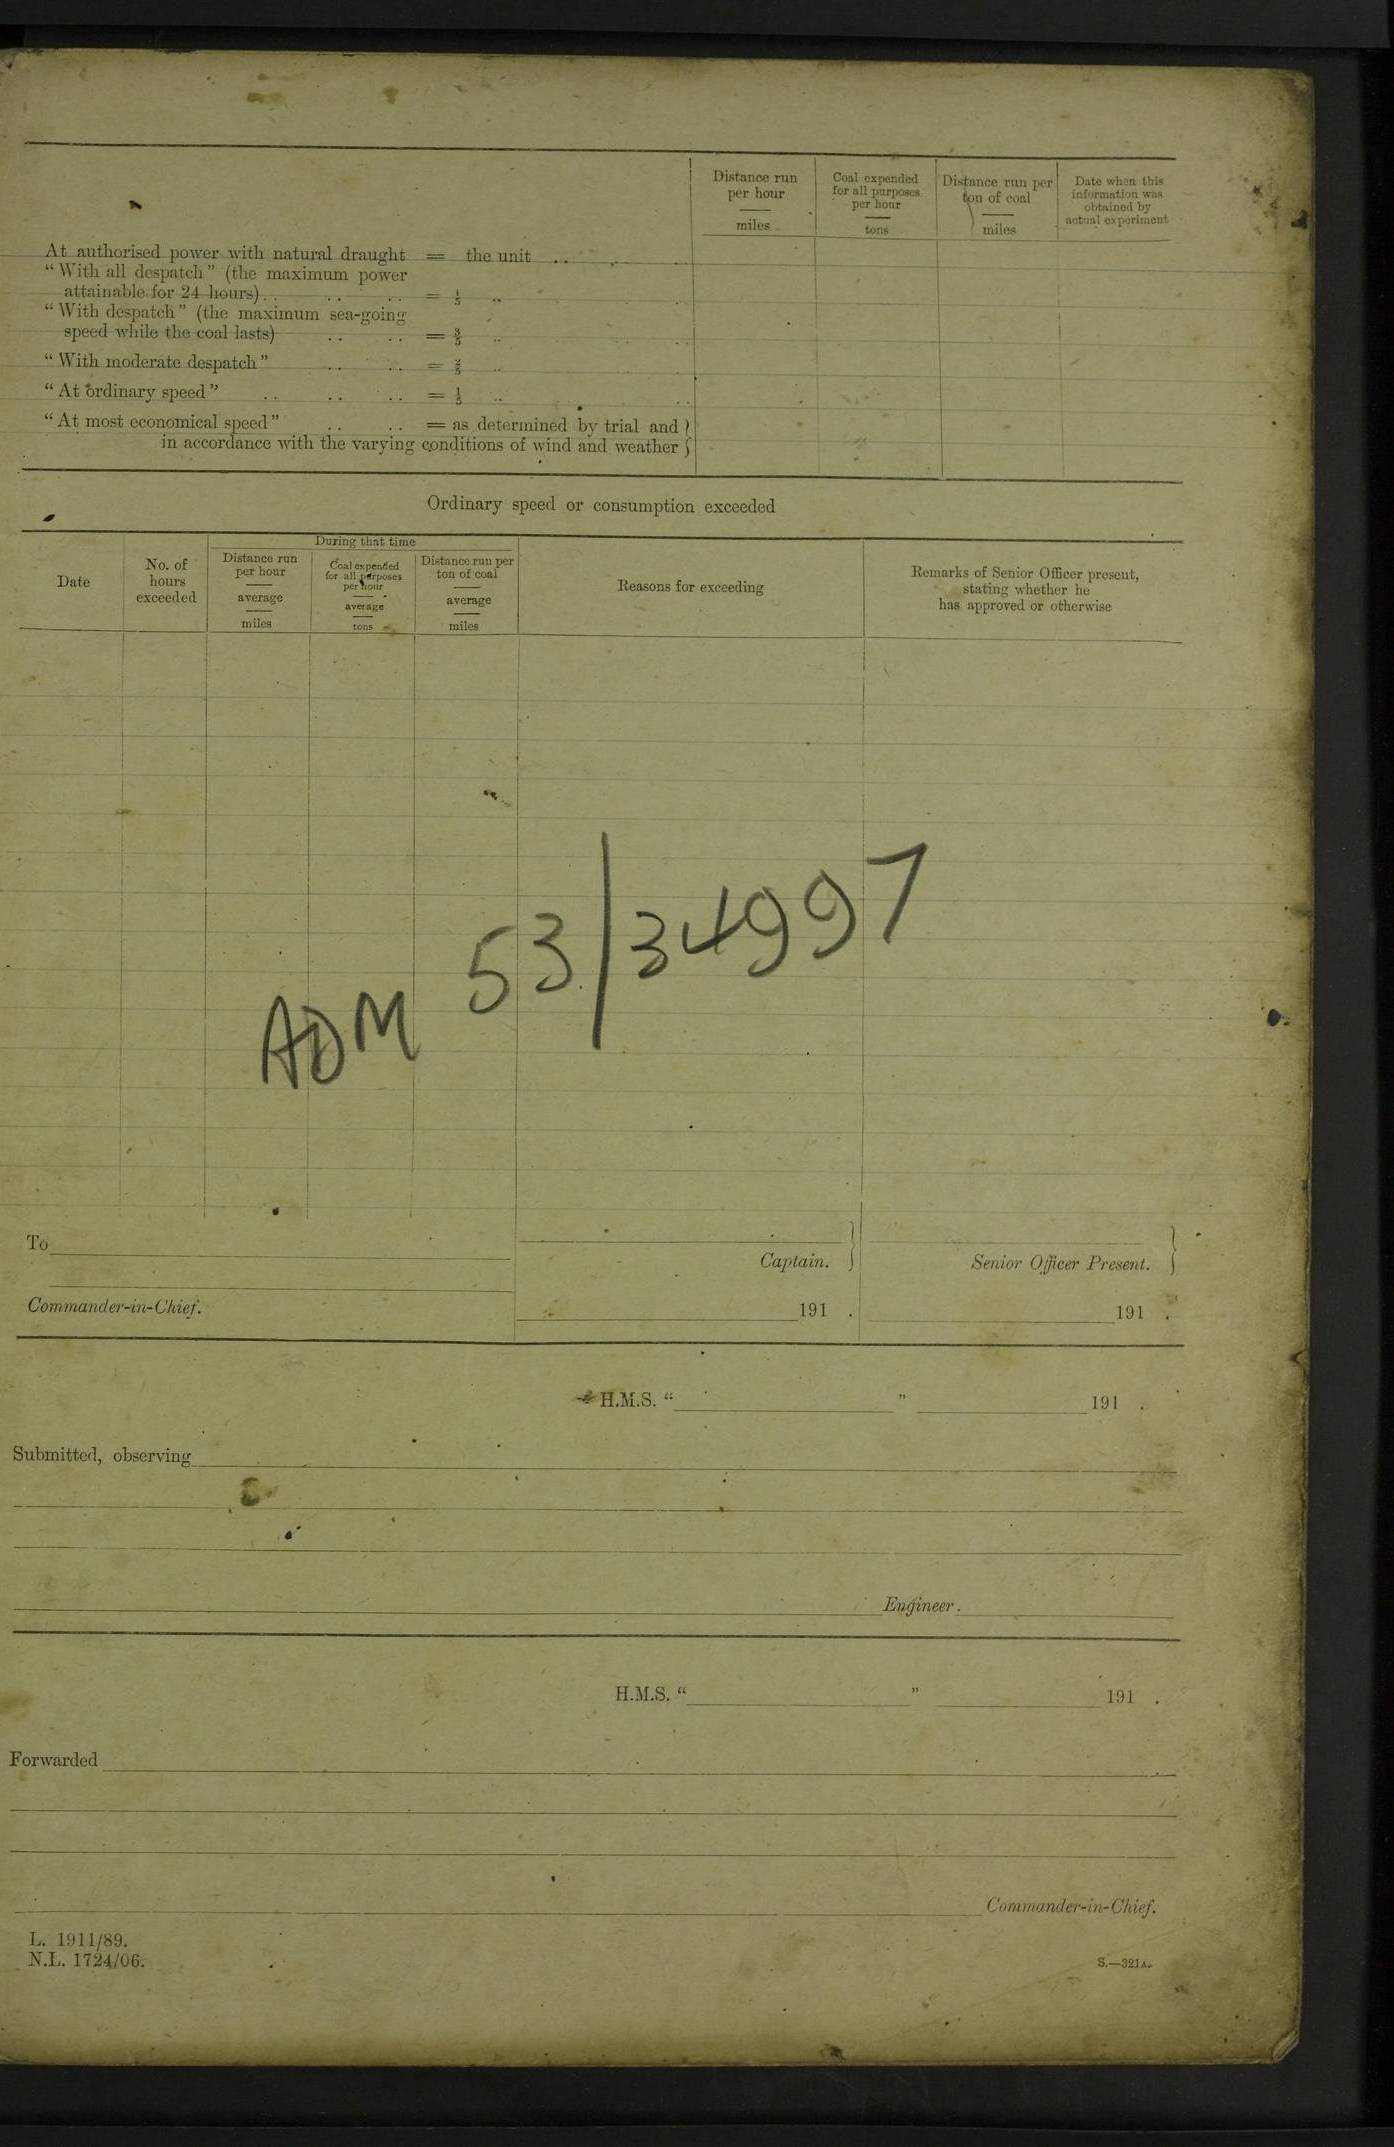 Distance run per hour miles
Coal expended for all purposes per hour tons
Distance run per ton of coal miles
Date when this information was obtained by actual experiment
At authorised power with natural draught = the unit ..
“With all despatch” (the maximum power
attainable for 24 hours) .. .. .. =
“With despatch” (the maximum sea-going
speed while the coal lasts) .. .. = 3/5 ..
“With moderate despatch” .. .. = 2/5 ..
“At ordinary speed” .. .. .. = 1/5 ..
“At most economical speed” .. .. = as determined by trial and }
in accordance with the varying conditions of wind and weather }
Ordinary speed or consumption exceeded
Date
No. of hours exceeded
During that time
Distance run per hour average miles
Coal expended for all purposes per hour average tons
Distance run per ton of coal average miles
Reasons for exceeding
Remarks of Senior Officer present, stating whether he has approved or otherwise
ADM 53/34997
To
Captain. }
Senior Officer Present. }
Commander-in-Chief.
191 .
191 .
H.M.S. “ ” 191 .
Submitted, observing
Engineer.
H.M.S. “ ” 191 .
Forwarded
Commander-in-Chief.
L. 1911/89.
N.L. 1724/06.
S.—321A.